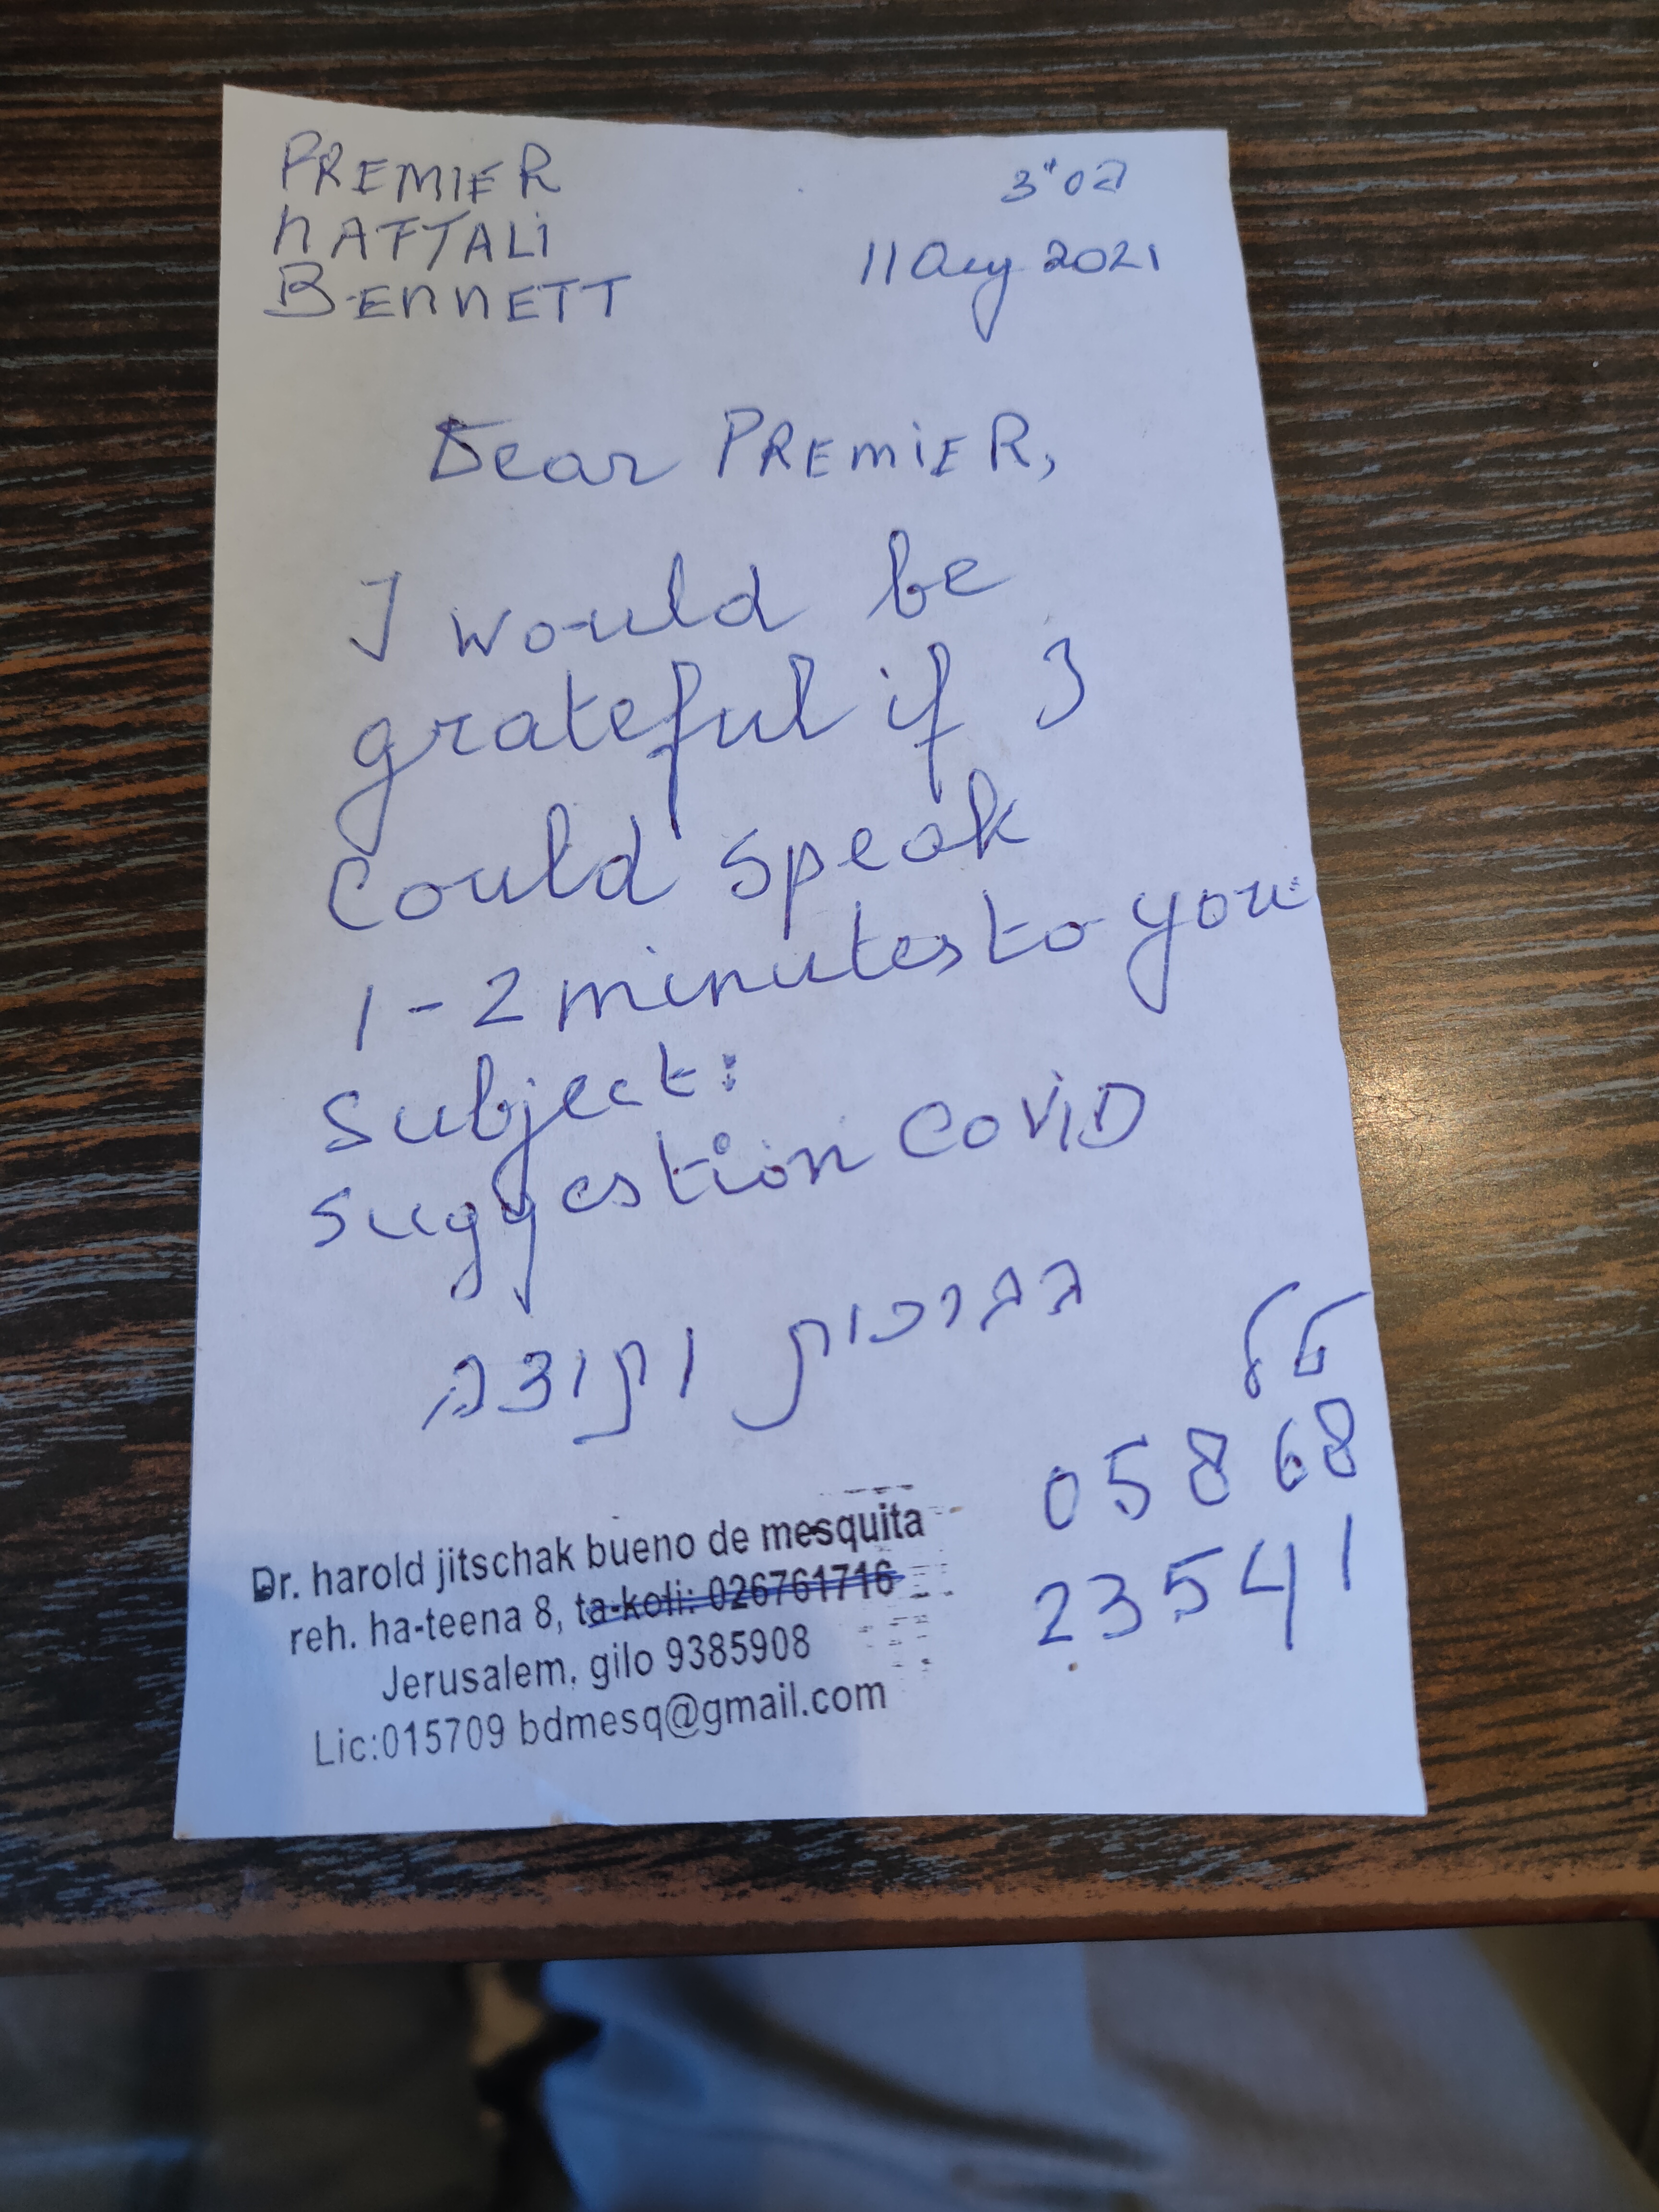 PREMIER
NAFTALI
BENNETT
בס"ד
11 Aug 2021
Dear PREMIER,
I would be
grateful if I
could speak
1-2 minutes to you
Subject:
suggestion COVID
בברכות ותודה
טל
05868
23541
Dr. harold jitschak bueno de mesquita
reh. ha-teena 8, ta-koli: 026761716
Jerusalem, gilo 9385908
Lic:015709 bdmesq@gmail.com